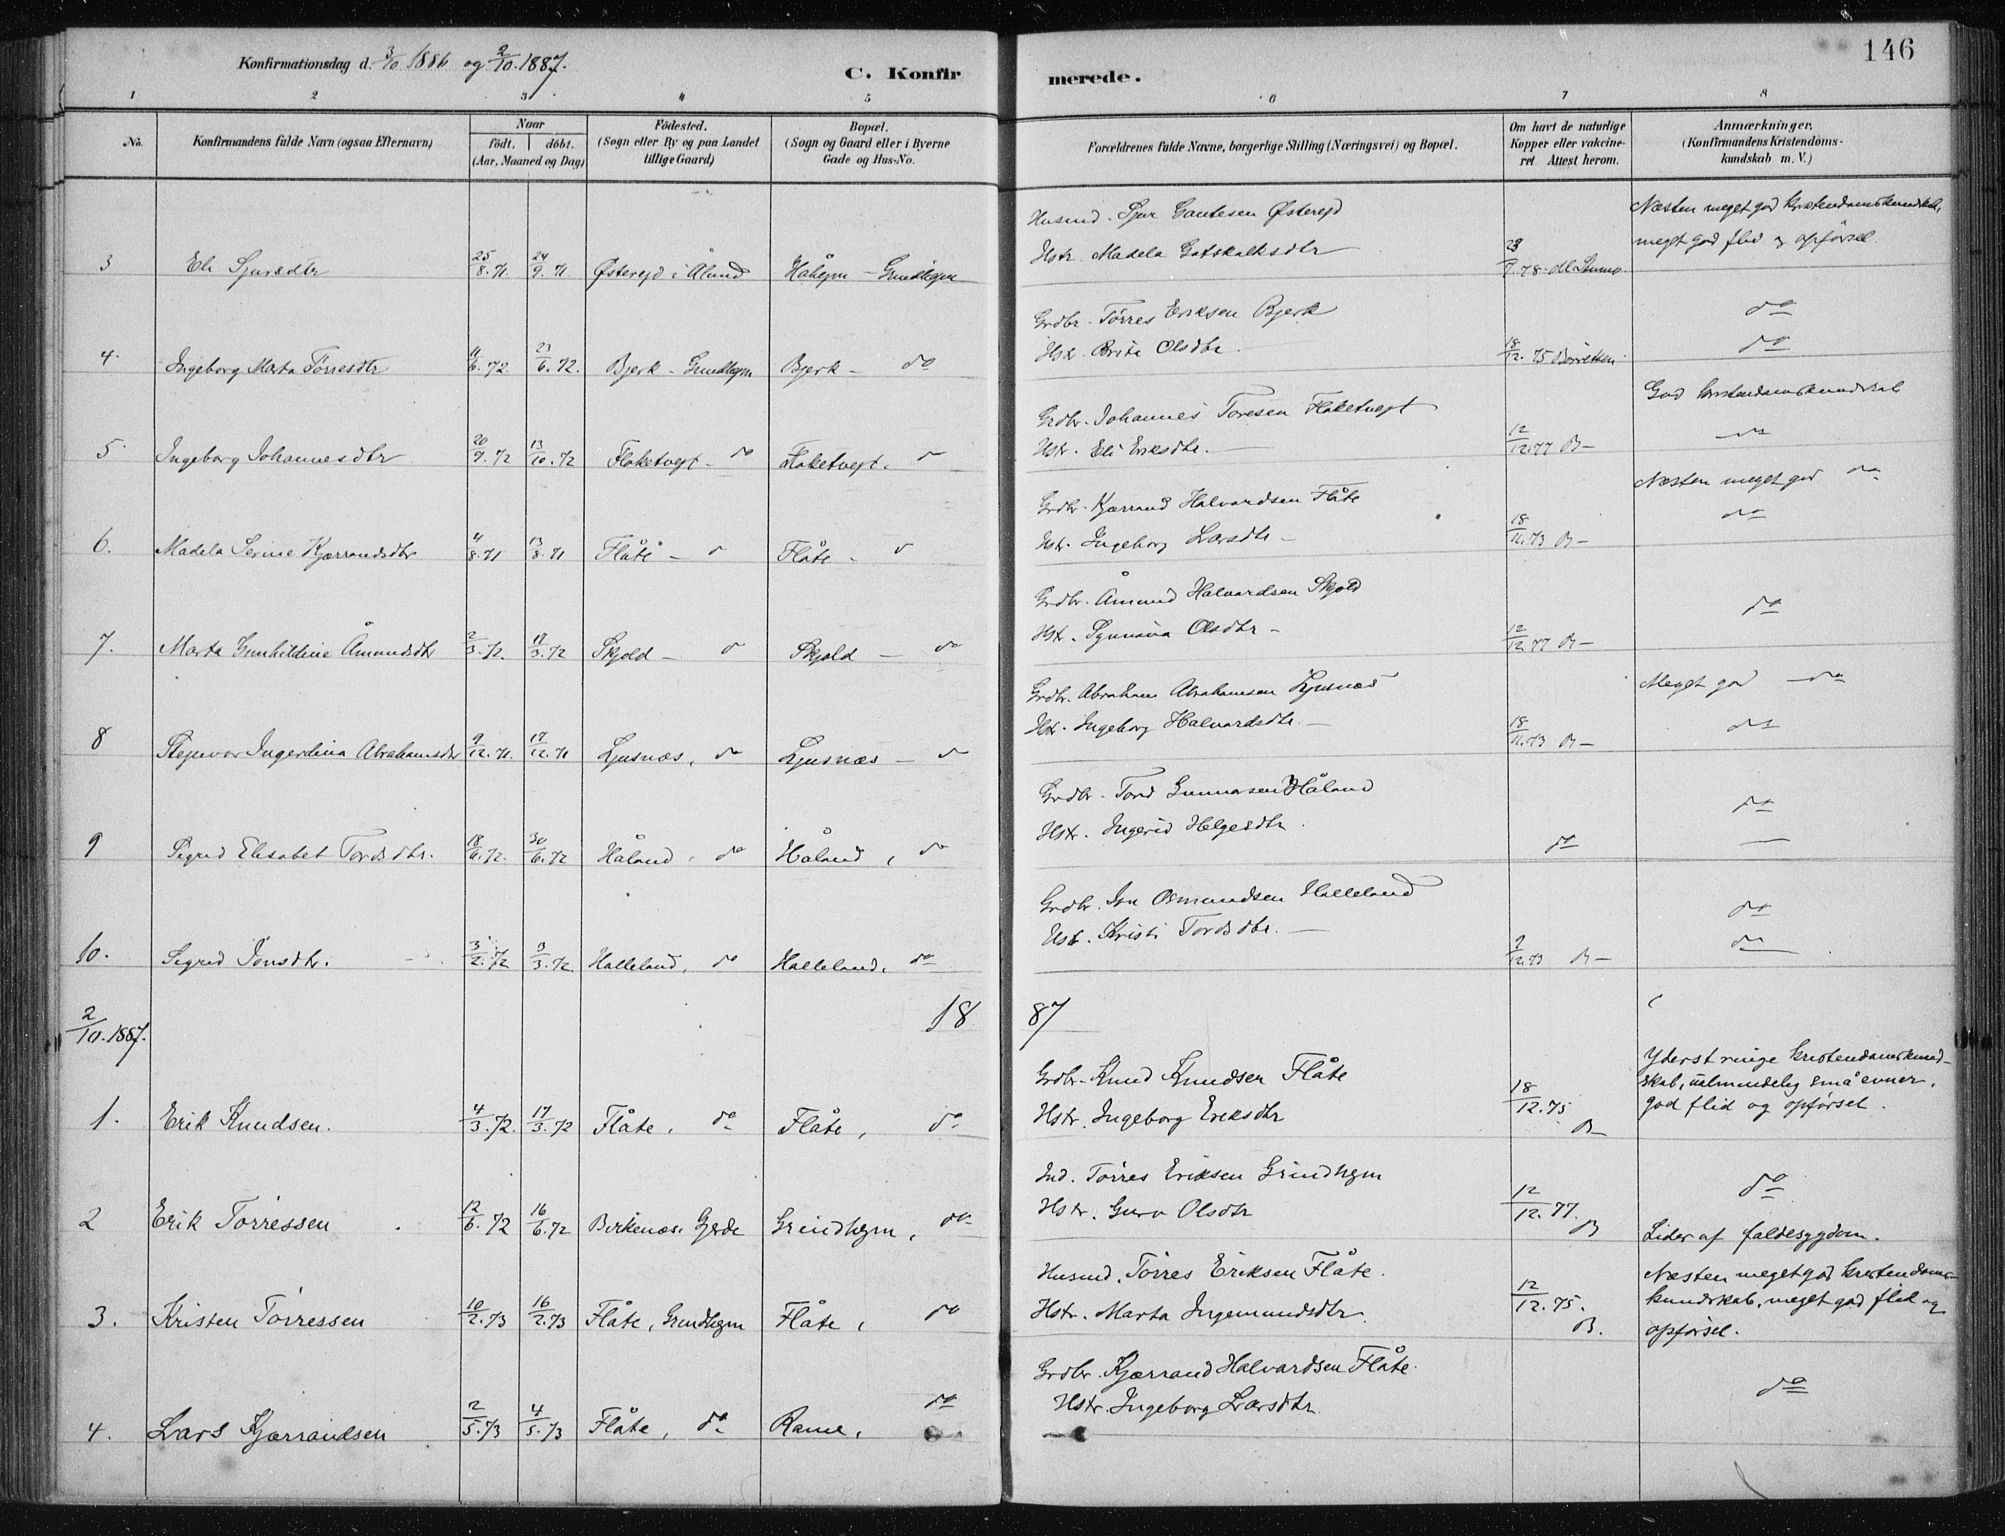 Konfirmationsdag d. 3/10 1886 og 2/10. 1887.
C. Konfir merede.
146
1 2 3 4 5 6 7 8
No.
Konfirmandens fulde Navn (ogsaa Efternavn)
Naar
født. døbt.
(Aar, Maaned og Dag)
Fødested.
(Sogn eller By og paa Landet
tillige Gaard)
Bopæl.
(Sogn og Gaard eller i Byerne
Gade og Hus-No.
Forældrenes fulde Navne, borgerlige Stilling (Næringsvei) og Bopæl.
Om havt de naturlige
Kopper eller vakcine-
ret Attest herom.
Anmærkninger.
(Konfirmandens Kristendoms-
kundskab m. V.)
Husmd. Sjur Gautesen Østerejd
Næsten meget god kristendomskundskab,
Hstr. Madela Gotskalksdtr
meget god flid og opførsel.
3 Eli Sjursdtr 25/8.71 24/9.71 Østerejd i Ålund
Grdbr. Tørres Eriksen Bjerk do
Hstr. Brita Olsdtr. do
4. Ingeborg Marta Tørresdtr 11/6.72. 23/6.72. Bjerk - Grindhejm Bjerk - do 18/12.75
Grdbr. Johannes Toresen Floketvejt
God kristendomskundskab
Hstr. Eli Eriksdtr. do
5. Ingeborg Johannesdtr 20/9.72 13/10.72 Floketvejt - do Floketvejt. do 12/12.77 B-
Grdbr. Kjærrand Halvardsen Flåte
Næsten meget god do
Hstr. Ingeborg Larsdtr - do
6. Madela Serine Kjærrandsdtr 4/8.71 13/8.71 Flåte - do Flåte - do 18/11.73 B-
Grdbr. Åmund Halvardsen Skjold do
Hstr. Synnøva Olsdtr -
7. Marta Gunhildine Åmundsdtr 2/3.72. 17/3.72 Skjold - do Skjold - do 12/12.77 B-
Grdbr. Abraham Abrahamsen Ljusnæs
Meget god do
Hstr. Ingeborg Halvardsdtr. - do
8 Ingerdina Abrahamsdtr 9/12.71. 17/12.71 Ljusnæs, do Ljusnæs - do 18/11.73 B-
Grdbr. Tord Gunnarsen Håland do
Hstr. Ingerid Helgesdtr.
9 Sigrid Elisabet Tordsdtr. 18/6.72. 30/6.72 Håland, do Håland, do
Grdbr. Jon Osmundsen Halleland do
Hstr. Kristi Tordsdtr. - do
10. Sigrid Jonsdtr. 3/2.72 3/3.72 Halleland, do Halleland, do
2/10.1887. 18 87
Yderst ringe kristendomskund-
Grdbr. Knud Knudsen Flåte
skab, ualmindelig små evner,
Hstr. Ingeborg Eriksdtr
god flid og opførsel.
1. Erik Knudsen. 4/3.72. 17/3.72 Flåte, do Flåte, do 18/12.75 B-
Ind. Tørres Eriksen Grindhejm do
Hstr. Guro Olsdtr
2 Erik Tørressen 12/6.72 16/6.72 Birkenæs. Gjerde Grindhejm, do 12/12.77. B
Lider af faldesygdom.
Husmd. Tørres Eriksen Flåte.
Næsten meget god kristendoms-
Hstr. Marta Ingemundsdtr.
kundskab, meget god flid og
opførsel.
3. Kristen Tørressen 10/2.73 16/2.73 Flåte, Grindhejm Flåte, do 12/12.75. B.
Grdbr. Kjærrand Halvardsen Flåte. do
Hstr. Ingeborg Larsdtr.
4. Lars Kjærrandsen 2/5.73 4/5.73 Flåte, do Rame, do